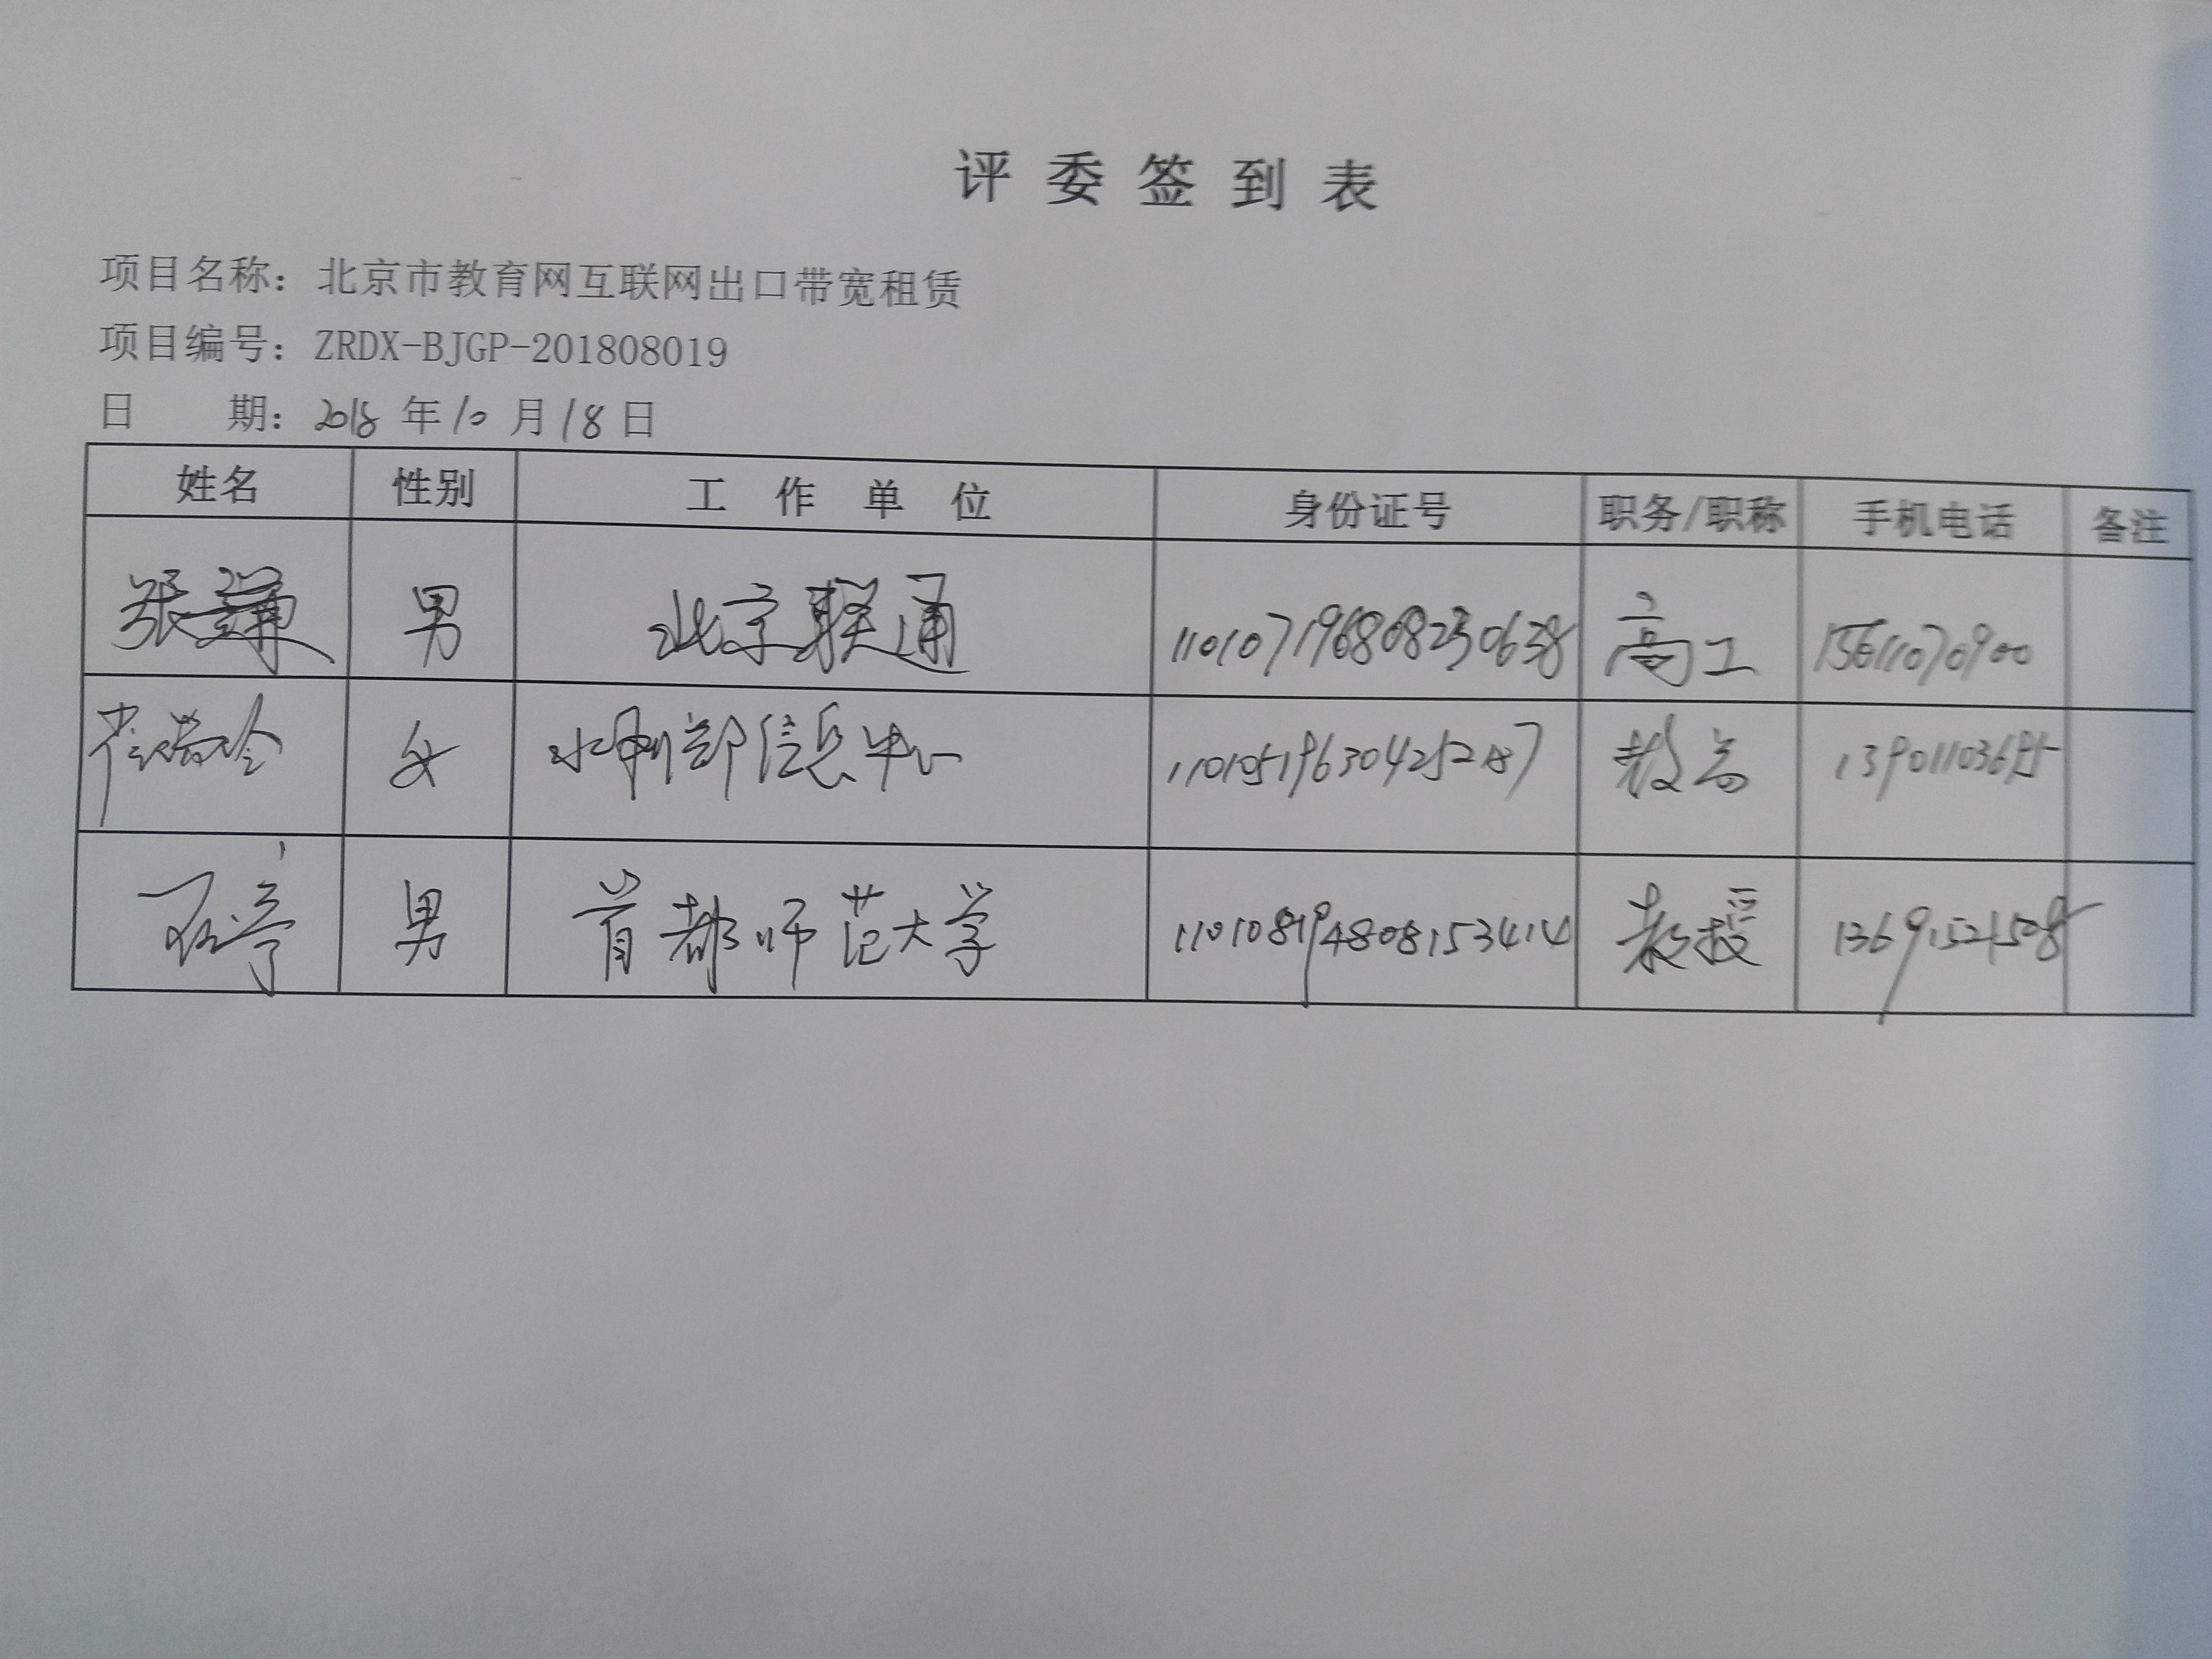 评委签到表
项目名称：北京市教育网互联网出口带宽租赁
项目编号：ZRDX-BJGP-201808019
日 期：2018年10月18日
姓名 性别 工作单位 身份证号 职务/职称 手机电话 备注
张谦 男 北京联通 110107196808230638 高工 15611070900
女 水利部信息中心 教高
男 首都师范大学 110108194808153414 教授